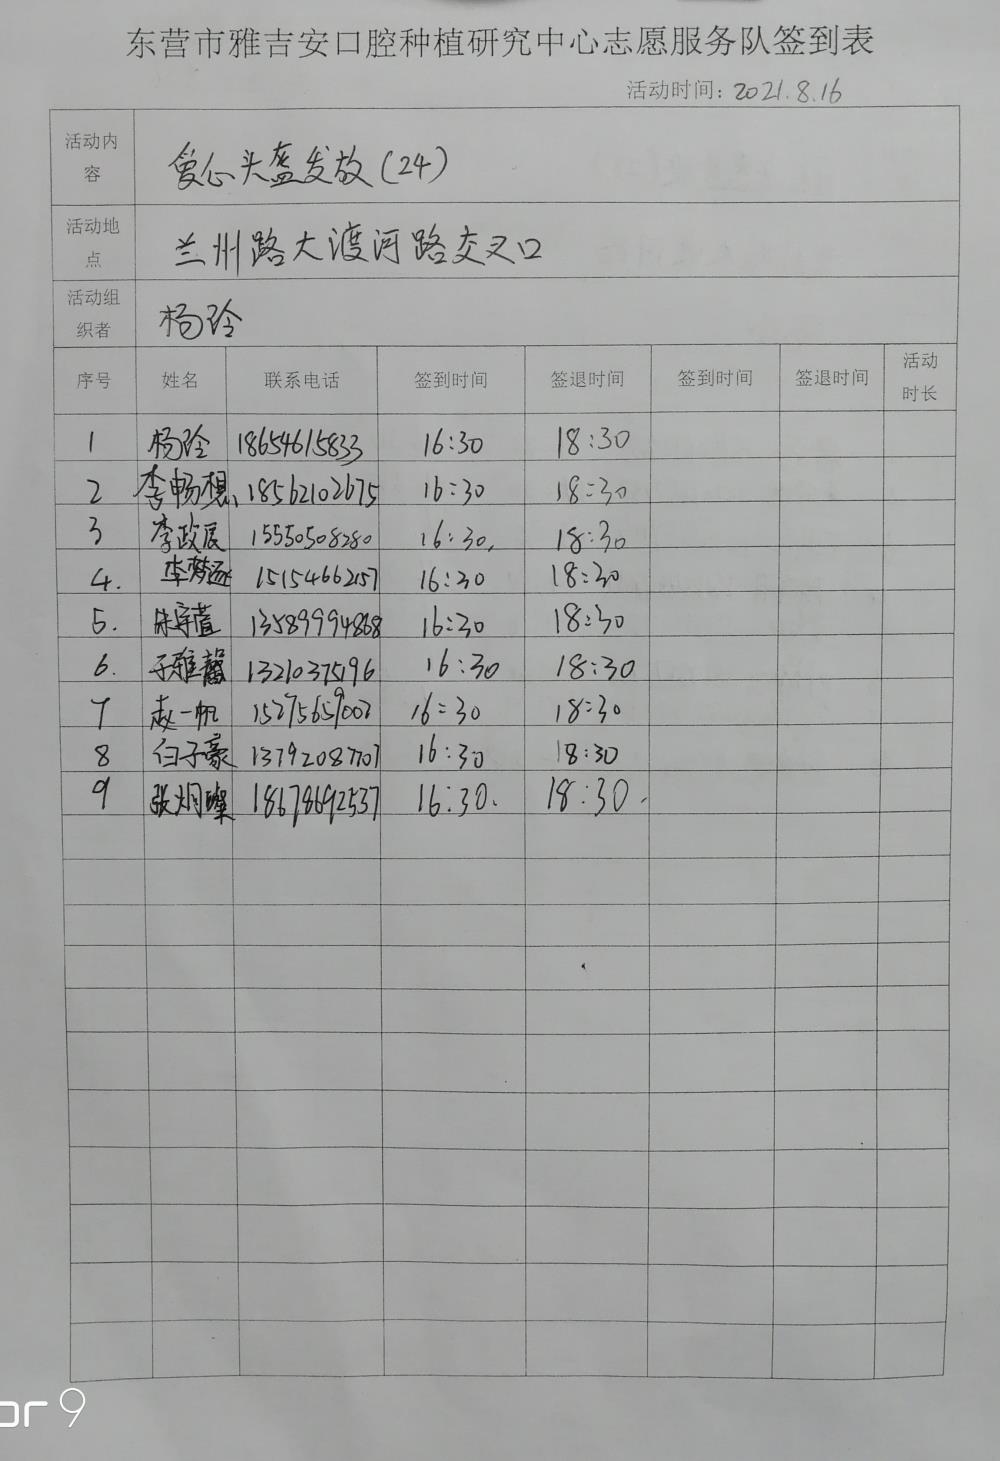 东营市雅吉安口腔种植研究中心志愿服务队签到表
活动时间：2021.8.16
活动内容 爱心头盔发放(24)
活动地点 兰州路大渡河路交叉口
活动组织者 杨玲
序号 姓名 联系电话 签到时间 签退时间 签到时间 签退时间 活动时长
1 杨玲 18654615833 16:30 18:30
2 李畅想 18562102675 16:30 18:30
3 李政辰 15550508280 16:30. 18:30
4. 李梦涵 15154662157 16:30 18:30
5. 朱宇萱 13589994868 16:30 18:30
6. 于雅馨 13210375196 16:30 18:30
7 赵一帆 15275659002 16:30 18:30
8 白子豪 13792087701 16:30 18:30
9 张炯璨 18678692537 16:30. 18:30.
or 9